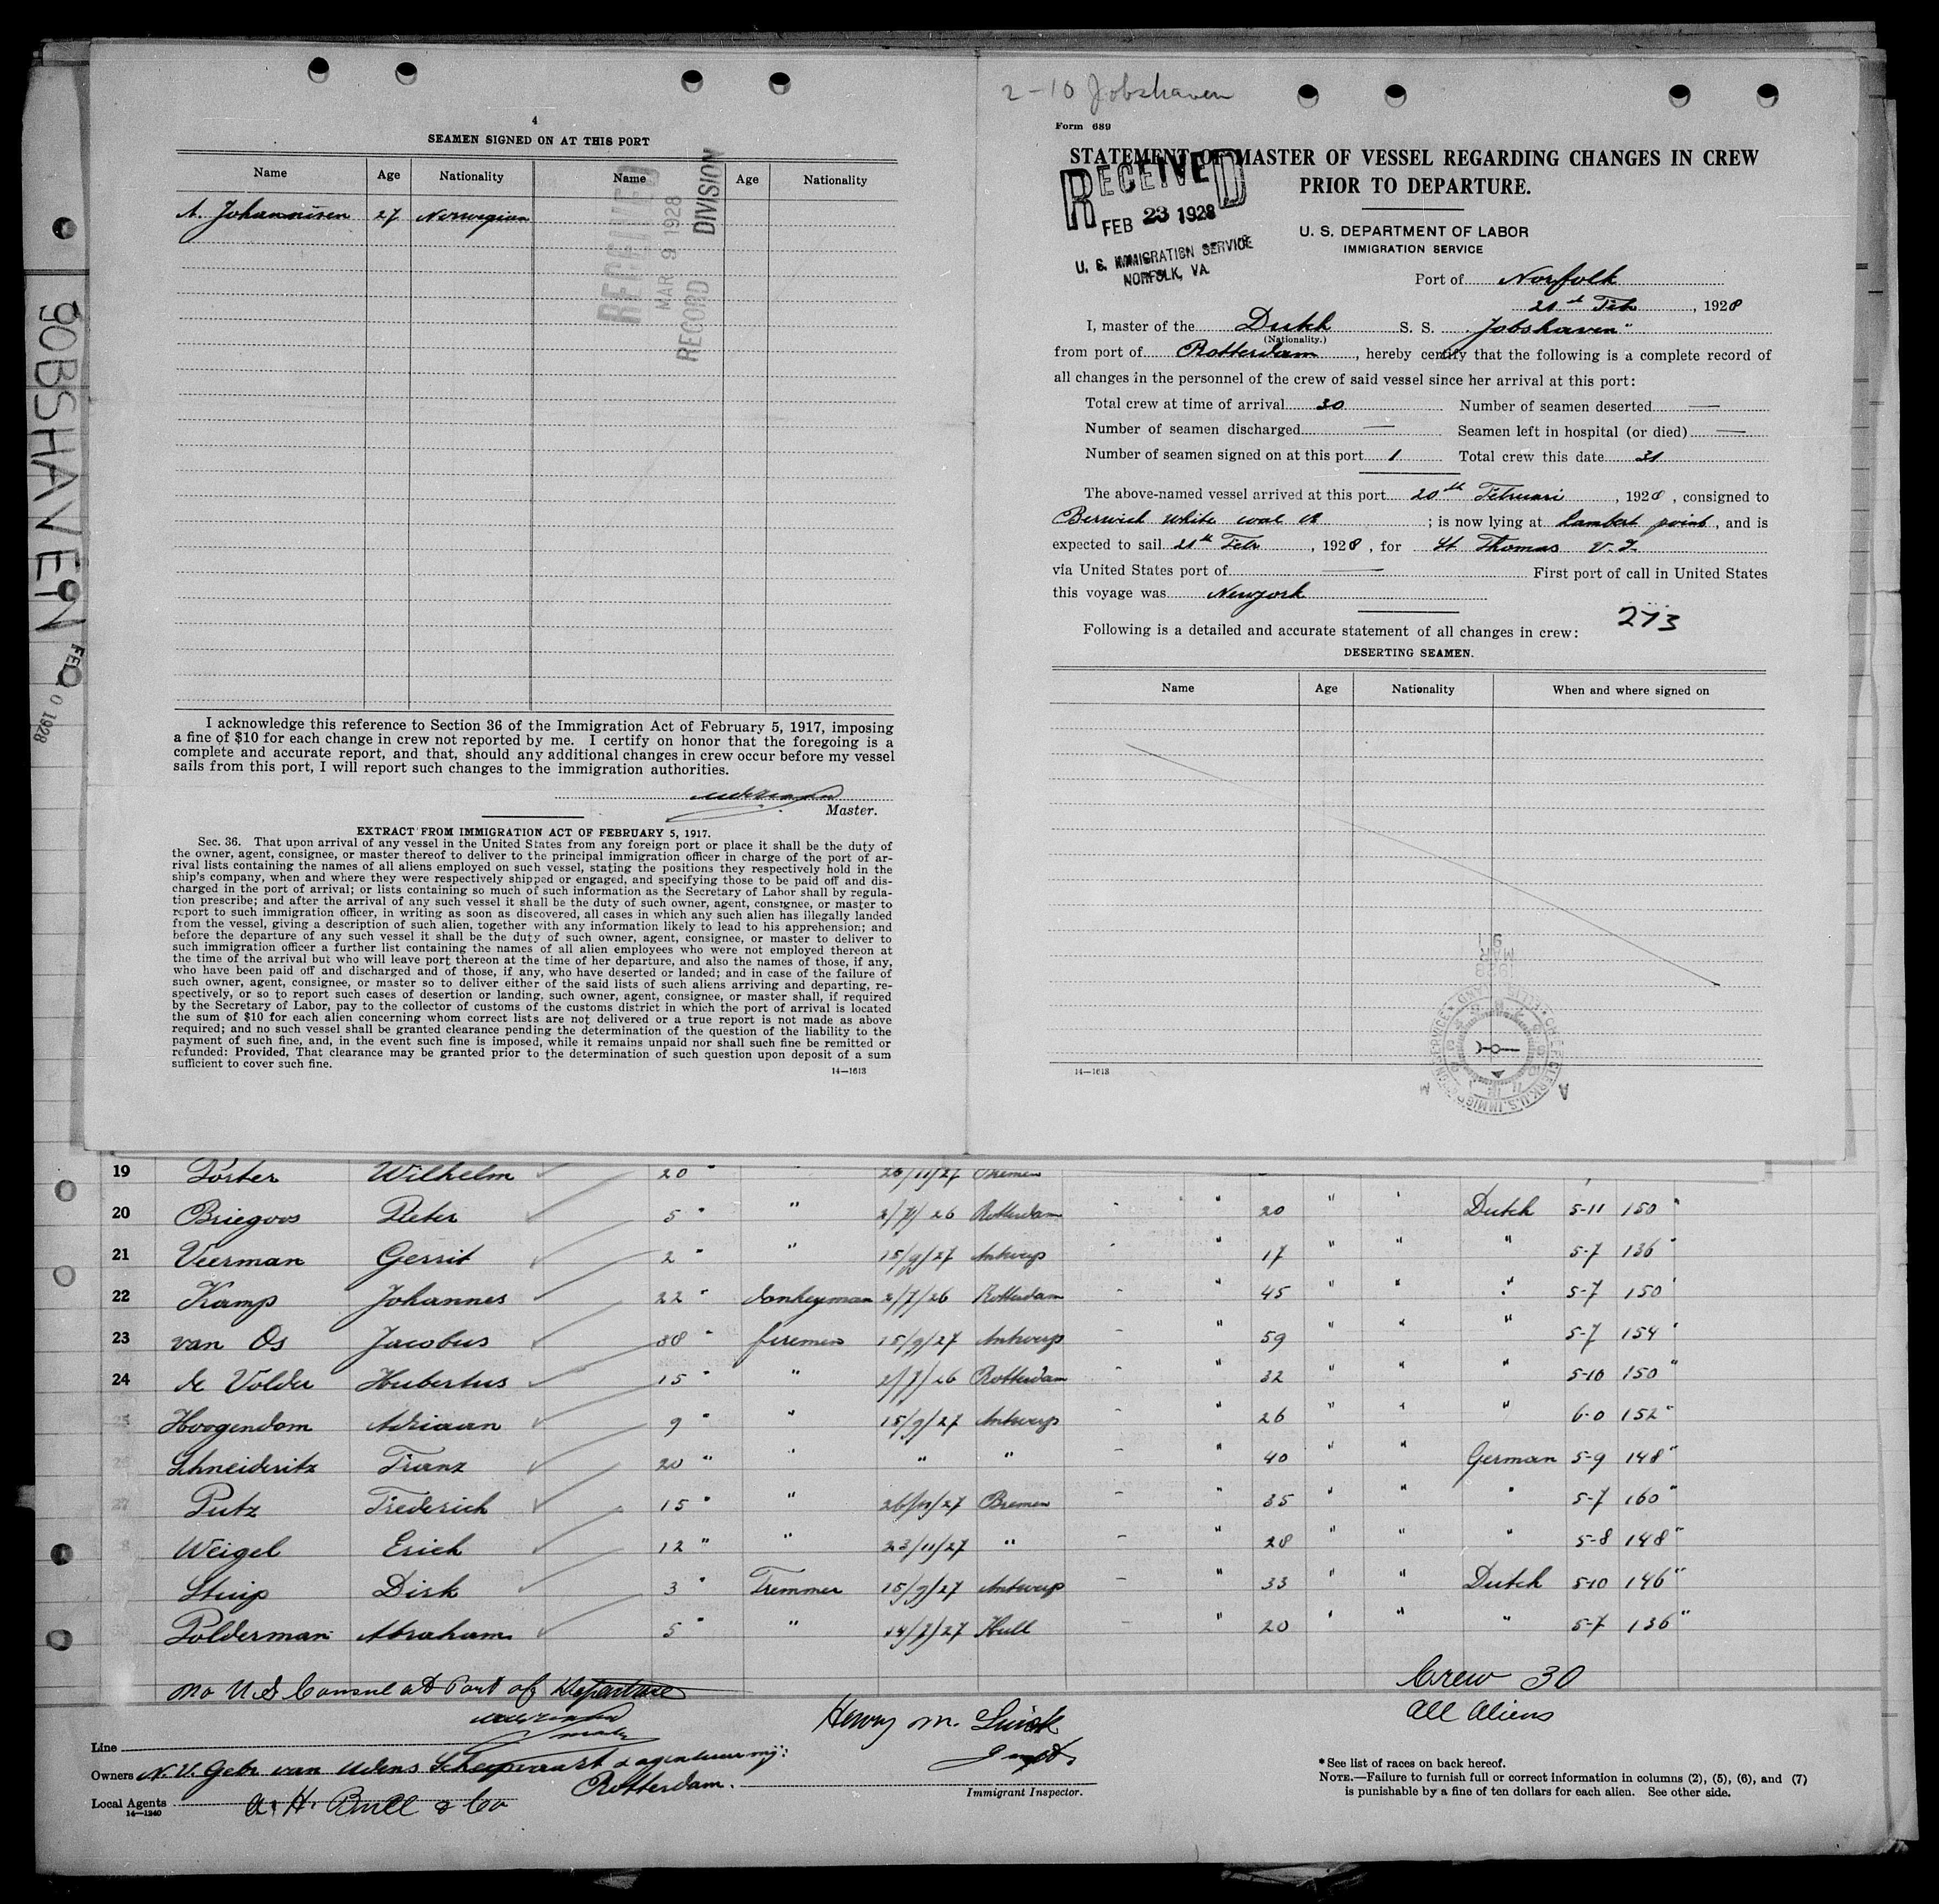 4
SEAMEN SIGNED ON AT THIS PORT
Name Age Nationality Name Age Nationality
A. Johannisen 27 Norwegian
RECEIVED
MAR 9 1928
RECORD DIVISION
I acknowledge this reference to Section 36 of the Immigration Act of February 5, 1917, imposing
a fine of $10 for each change in crew not reported by me. I certify on honor that the foregoing is a
complete and accurate report, and that, should any additional changes in crew occur before my vessel
sails from this port, I will report such changes to the immigration authorities.
Master.
EXTRACT FROM IMMIGRATION ACT OF FEBRUARY 5, 1917.
Sec. 36. That upon arrival of any vessel in the United States from any foreign port or place it shall be the duty of
the owner, agent, consignee, or master thereof to deliver to the principal immigration officer in charge of the port of ar-
rival lists containing the names of all aliens employed on such vessel, stating the positions they respectively hold in the
ship's company, when and where they were respectively shipped or engaged, and specifying those to be paid off and dis-
charged in the port of arrival; or lists containing so much of such information as the Secretary of Labor shall by regula-
tion prescribe; and after the arrival of any such vessel it shall be the duty of such owner, agent, consignee, or master to
report to such immigration officer, in writing as soon as discovered, all cases in which any such alien has illegally landed
from the vessel, giving a description of such alien, together with any information likely to lead to his apprehension; and
before the departure of any such vessel it shall be the duty of such owner, agent, consignee, or master to deliver to
such immigration officer a further list containing the names of all alien employees who were not employed thereon at
the time of the arrival but who will leave port thereon at the time of her departure, and also the names of those, if any,
who have been paid off and discharged and of those, if any, who have deserted or landed; and in case of the failure of
such owner, agent, consignee, or master so to deliver either of the said lists of such aliens arriving and departing, re-
spectively, or so to report such cases of desertion or landing, such owner, agent, consignee, or master shall, if required
by the Secretary of Labor, pay to the collector of customs of the customs district in which the port of arrival is located
the sum of $10 for each alien concerning whom correct lists are not delivered or a true report is not made as above
required; and no such vessel shall be granted clearance pending the determination of the question of the liability to the
payment of such fine, and, in the event such fine is imposed, while it remains unpaid nor shall such fine be remitted or
refunded: Provided, That clearance may be granted prior to the determination of such question upon deposit of a sum
sufficient to cover such fine.
14—1613
JOBSHAVEN
FEB 20 1928
2-10 Jobshaven
Form 689
STATEMENT OF MASTER OF VESSEL REGARDING CHANGES IN CREW
PRIOR TO DEPARTURE.
RECEIVED
FEB 23 1928
U. S. IMMIGRATION SERVICE
NORFOLK, VA.
U. S. DEPARTMENT OF LABOR
IMMIGRATION SERVICE
Port of Norfolk
21th Feb, 1928
I, master of the Dutch S. S. "Jobshaven"
(Nationality.)
from port of Rotterdam, hereby certify that the following is a complete record of
all changes in the personnel of the crew of said vessel since her arrival at this port:
Total crew at time of arrival 30 Number of seamen deserted —
Number of seamen discharged — Seamen left in hospital (or died) —
Number of seamen signed on at this port 1 Total crew this date 31
The above-named vessel arrived at this port 20th Februari, 1928, consigned to
Berwick white coal; is now lying at Lambert point, and is
expected to sail 21th Feb, 1928, for St Thomas V.I.
via United States port of — First port of call in United States
this voyage was Newyork
273
Following is a detailed and accurate statement of all changes in crew:
DESERTING SEAMEN.
Name Age Nationality When and where signed on
MAR 9 1928
CHIEF CLERK, U.S. IMMIGRATION SERVICE ELLIS ISLAND
14—1613
19 Forster Wilhelm 20 " " 26/11/27 Bremen
20 Briegoos Pieter 5 " " 2/7/26 Rotterdam - " " 20 " " Dutch 5-11 150 "
21 Veerman Gerrit 2 " " 15/9/27 Antwerp - " 17 " " " 5-7 136 "
22 Kamp Johannes 22 " donkeyman 2/7/26 Rotterdam - " 45 " " " 5-7 150 "
23 van Os Jacobus 38 " firemen 15/9/27 Antwerp - " 59 " " " 5-7 154 "
24 de Volder Hubertus 15 " " 2/7/26 Rotterdam - " 32 " " " 5-10 150 "
25 Hoogendom Adriaan 9 " " 15/9/27 Antwerp - " 26 " " " 6-0 152 "
26 Schneideritz Franz 20 " " " " - " 40 " " German 5-9 148 "
27 Putz Frederich 15 " " 26/11/27 Bremen - " 35 " " " 5-7 160 "
8 Weigel Erich 12 " " 23/11/27 " - " 28 " " " 5-8 148 "
Stuip Dirk 3 " Tremmer 15/9/27 Antwerp - " 33 " " Dutch 5-10 146 "
Polderman Abraham 5 " " 14/7/27 Hull - " 20 " " " 5-7 136 "
No U S Consul at Port of Departure
Crew 30
All Aliens
Henry M.
Line
Owners N. V. Gebr van Udens Scheepvaart & agentuur mij:
Rotterdam.
Local Agents A. H. Bull & Co
14—1240
Immigrant Inspector.
* See list of races on back hereof.
NOTE.—Failure to furnish full or correct information in columns (2), (5), (6), and (7)
is punishable by a fine of ten dollars for each alien. See other side.